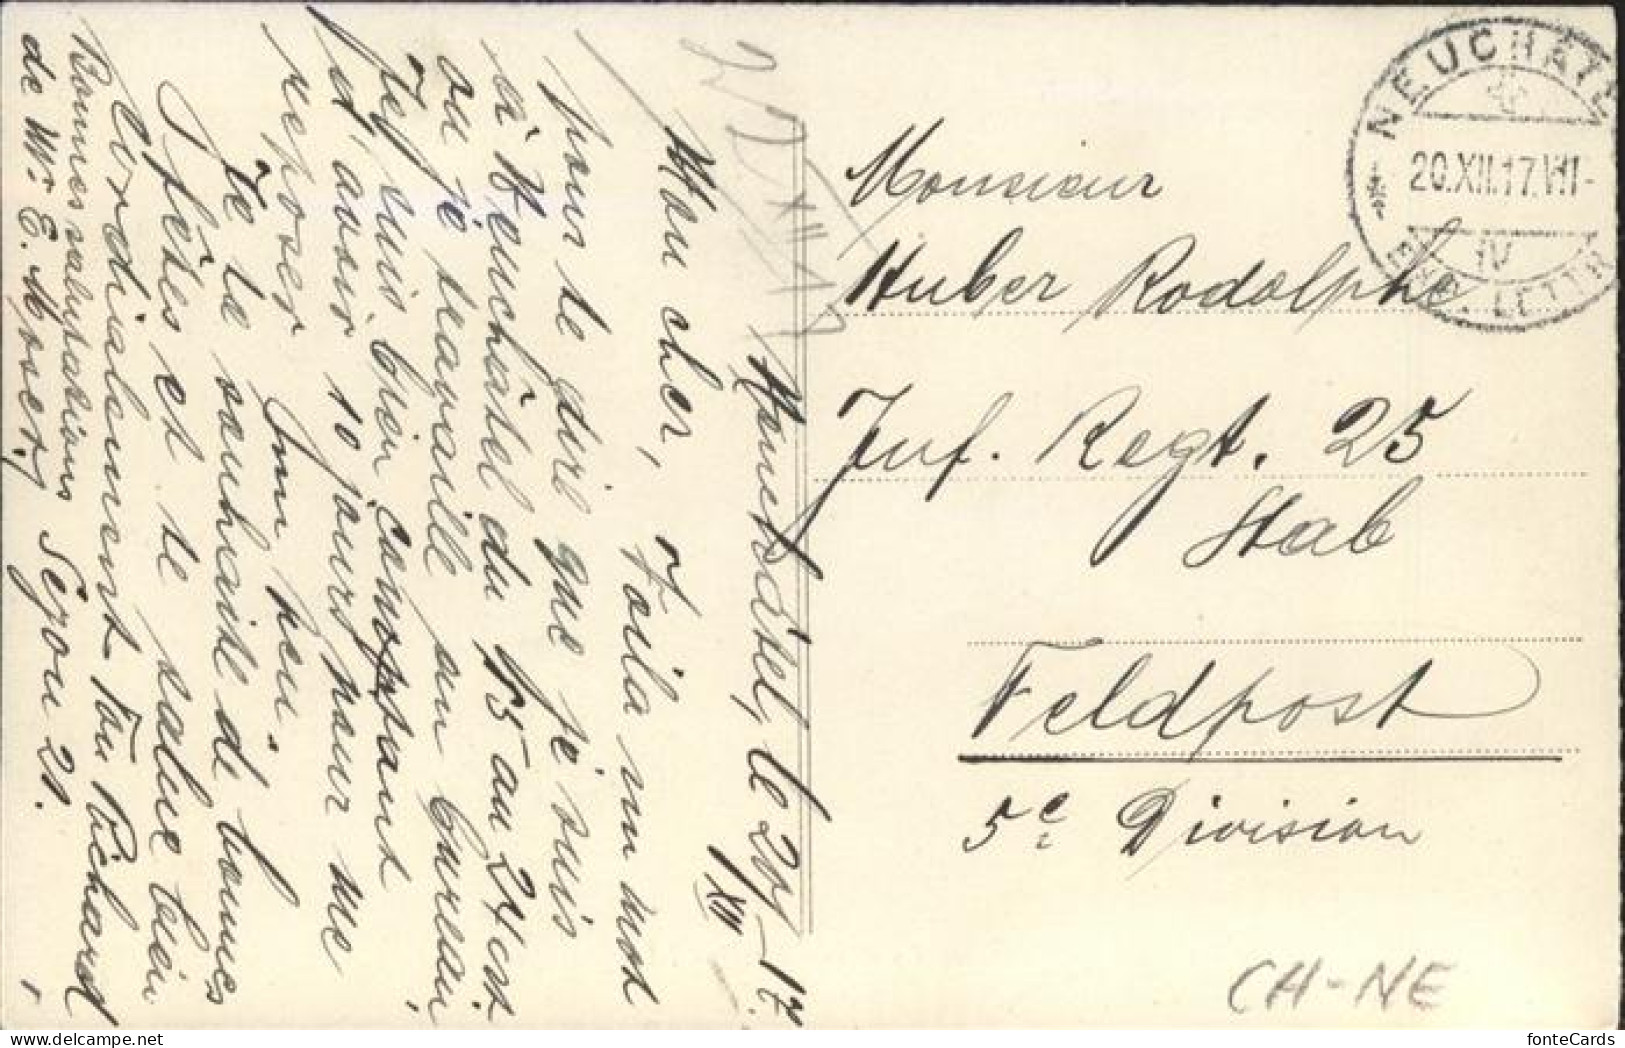 Neuchâtel, le 20/XII 17.
Mon cher, Voilà un mot
pour te dire que je suis
à Neuchâtel du 15 au 24 est
où je travaille au bureau
Je suis bien content
d'avoir 10 jours pour me
reposer un peu.
Je te souhaite de bonnes
fêtes et te salue bien
Cordialement Ton Richard
Bonnes salutations
de Mr. E. Moser, Seyon 21.
NEUCHATEL
20.XII.17.VII-
IV
EXP. LETTR
Monsieur
Huber Rodolphe
Inf. Regt. 25
Stab
Feldpost
5e Division
CH-NE
fonteCards